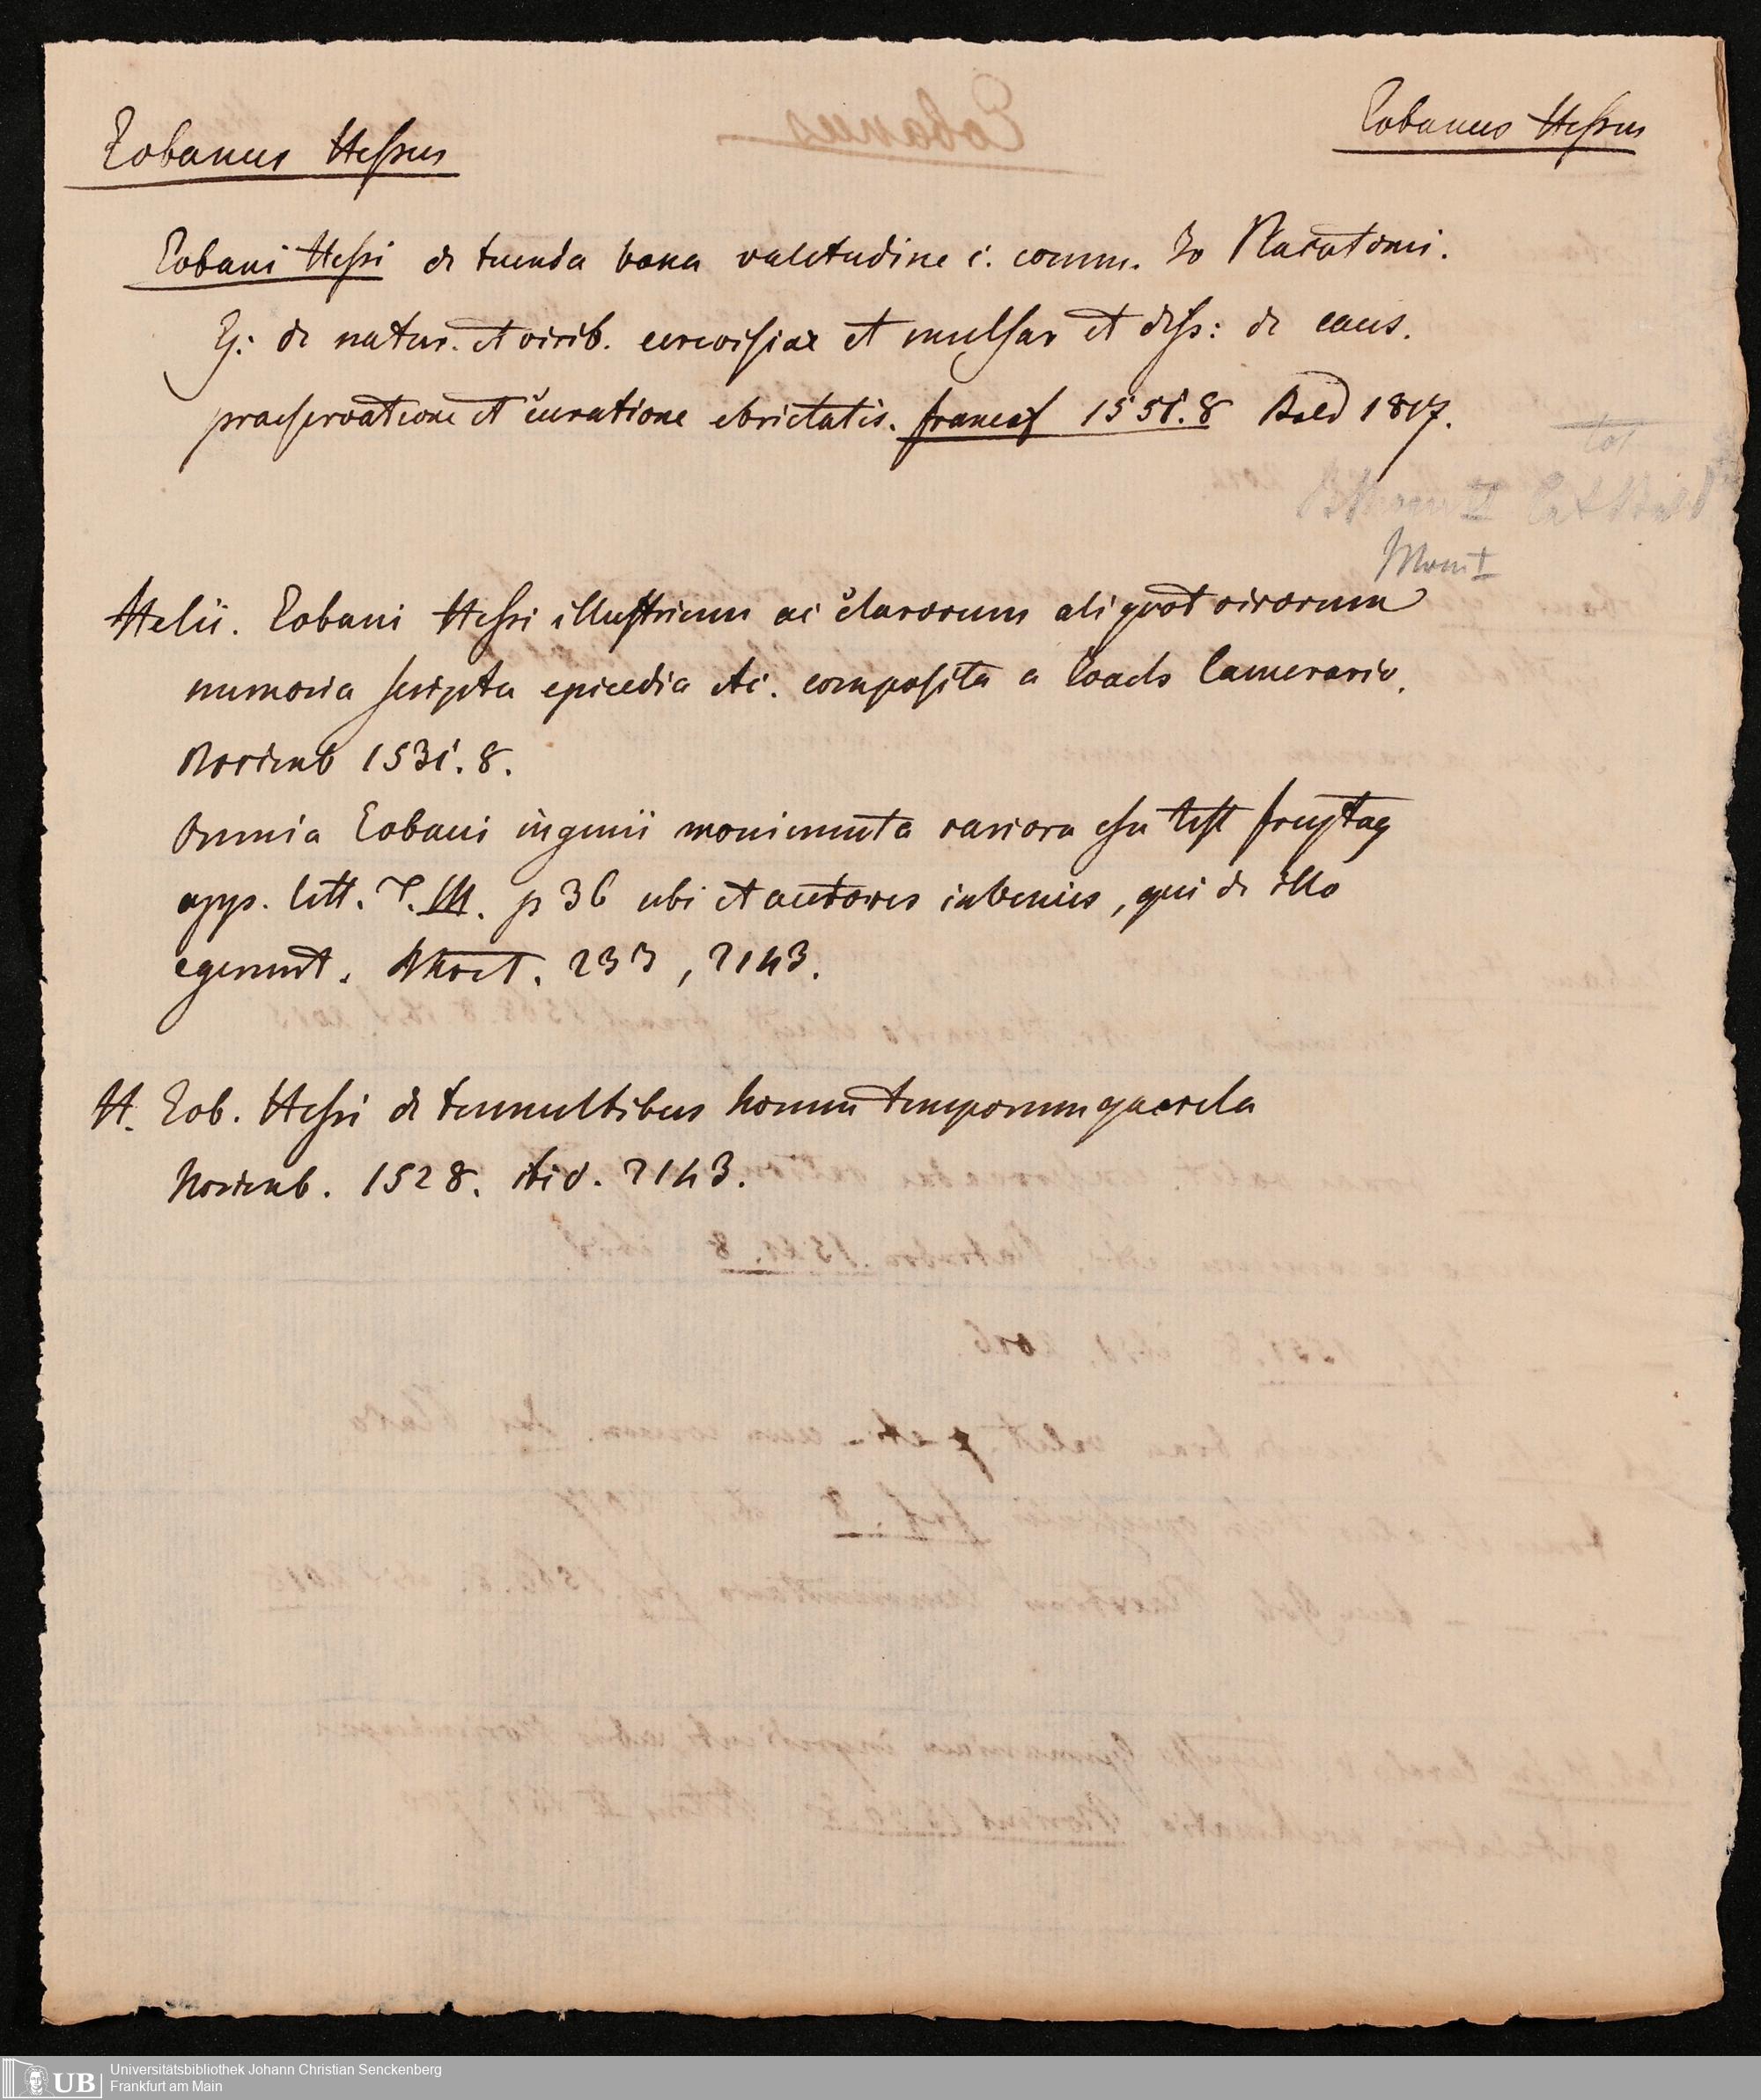 Eobanus Hessus
Eobanus Hessus
Eobani Hessi de tuenda bona valetudine c. comm. Jo Placotomi.
Ej: de natur. et virib. cerevisiae et mulsar et diss: de caus.
praeservatione et curatione ebrietatis. francof 1551. 8 1817.
Mom I
Helii. Eobani Hessi illustrium ac clarorum aliquot virorum
memoria scripta epicedia etc. composita a Camerario.
Norimb 1531. 8.
Omnia Eobani ingenii monimenta rariora esse test freytag
app. litt. T. III. p 36 ubi et autores invenies, qui de illo
egerunt. 233, 2143.
H. Eob. Hessi de tumultibus horum temporum querela
Norimb. 1528. ibid. 2143.
UB
Universitätsbibliothek Johann Christian Senckenberg
Frankfurt am Main